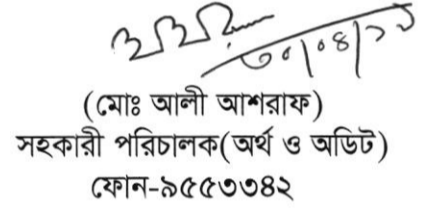 (মোঃ আলী আশরাফ)
সহকারী পরিচালক(অর্থ ও অডিট)
ফোন-৯৫৫৩৩৪২